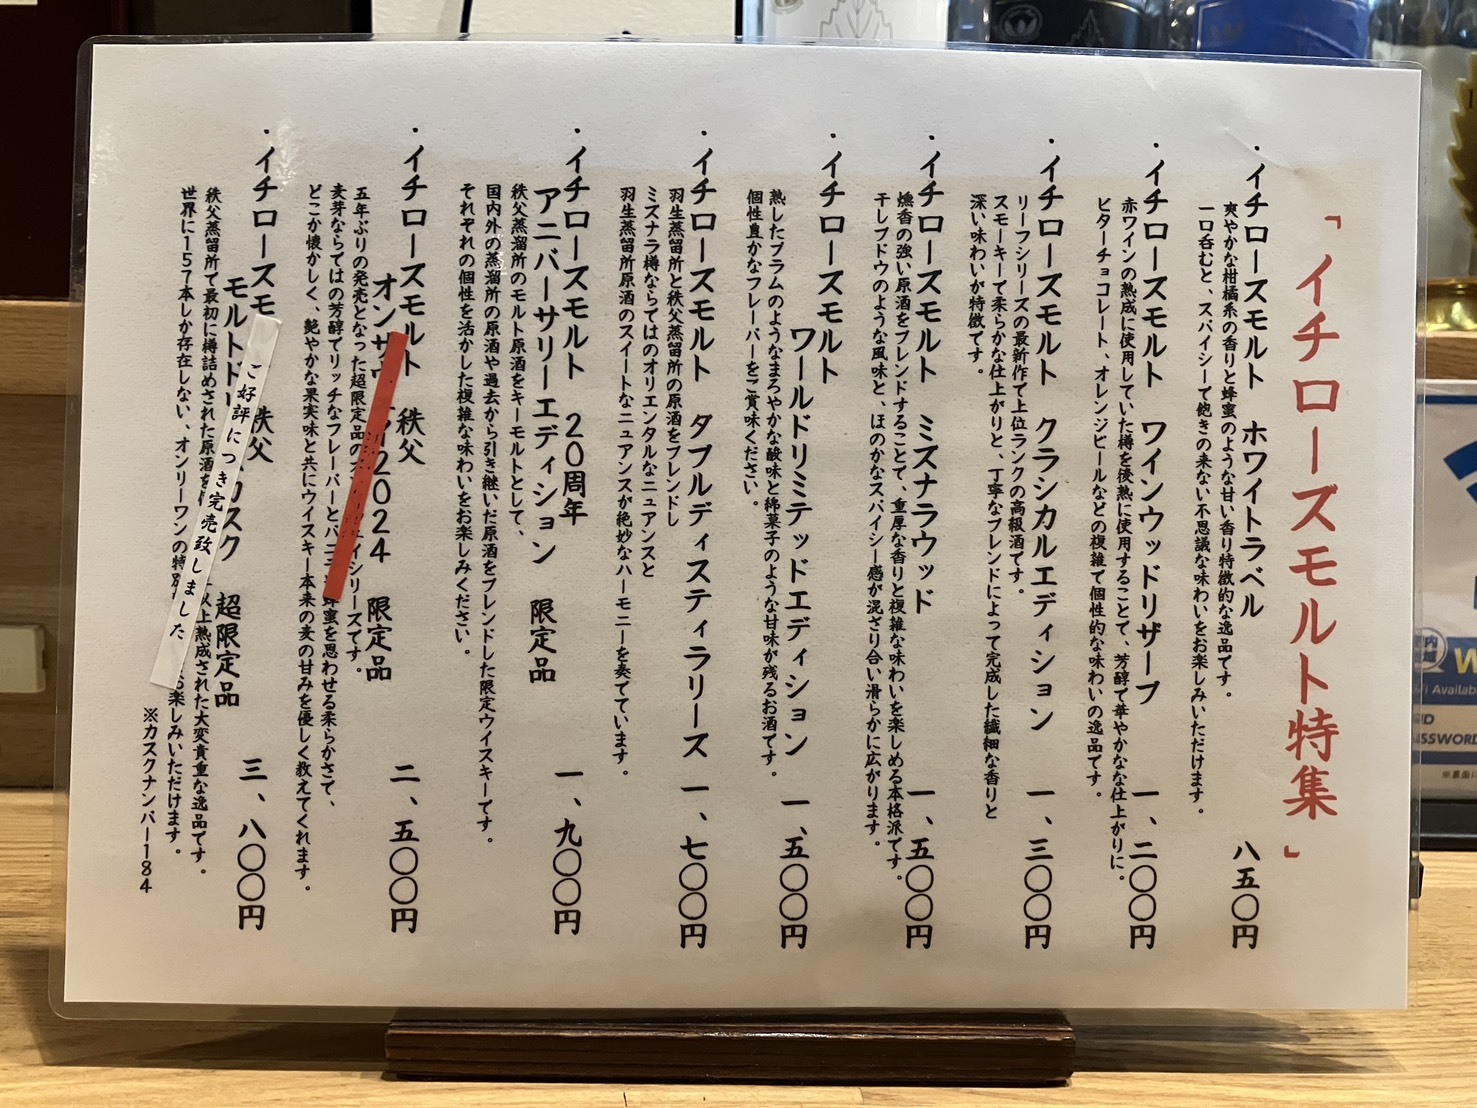 「イチローズモルト特集」
・イチローズモルト ホワイトラベル 八五〇円
爽やかな柑橘系の香りと蜂蜜のような甘い香り特徴的な逸品です。
一口呑むと、スパイシーで飽きの来ない不思議な味わいをお楽しみいただけます。
・イチローズモルト ワインウッドリザーブ 一、二〇〇円
赤ワインの熟成に使用していた樽を後熟に使用することで、芳醇で華やかなな仕上がりに。
ビターチョコレート、オレンジピールなどの複雑で個性的な味わいの逸品です。
・イチローズモルト クラシカルエディション 一、三〇〇円
リーフシリーズの最新作で上位ランクの高級酒です。
スモーキーで柔らかな仕上がりと、丁寧なブレンドによって完成した繊細な香りと
深い味わいが特徴です。
・イチローズモルト ミズナラウッド 一、五〇〇円
燻香の強い原酒をブレンドすることで、重厚な香りと複雑な味わいを楽しめる本格派です。
干しブドウのような風味と、ほのかなスパイシー感が混ざり合い滑らかに広がります。
・イチローズモルト
ワールドリミテッドエディション 一、五〇〇円
熟したプラムのようなまろやかな酸味と綿菓子のような甘味が残るお酒です。
個性豊かなフレーバーをご賞味ください。
・イチローズモルト ダブルディスティラリーズ 一、七〇〇円
羽生蒸留所と秩父蒸留所の原酒をブレンドし
ミズナラ樽ならではのオリエンタルなニュアンスと
羽生蒸留所原酒のスイートなニュアンスが絶妙なハーモニーを奏でています。
・イチローズモルト 20周年
アニバーサリーエディション 限定品 一、九〇〇円
秩父蒸溜所のモルト原酒をキーモルトとして、
国内外の蒸溜所の原酒や過去から引き継いだ原酒をブレンドした限定ウイスキーです。
それぞれの個性を活かした複雑な味わいをお楽しみください。
・イチローズモルト 秩父
オンザ 2024 限定品 二、五〇〇円
五年ぶりの発売となった超限定品の イシリーズです。
麦芽ならではの芳醇でリッチなフレーバーとバニ 蜂蜜を思わせる柔らかさで、
どこか懐かしく、艶やかな果実味と共にウイスキー本来の麦の甘みを優しく教えてくれます。
・イチローズモ 秩父
モルトド カスク 超限定品 三、八〇〇円
ご好評につき完売致しました
秩父蒸留所で最初に樽詰めされた原酒を 以上熟成された大変貴重な逸品です。
世界に157本しか存在しない、オンリーワンの特別 お楽しみいただけます。
※カスクナンバー184